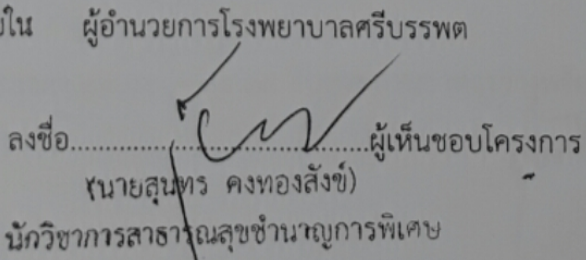 ใน ผู้อำนวยการโรงพยาบาลศรีบรรพต
ลงชื่อ................................ผู้เห็นชอบโครงการ
(นายสุนทร คงทองสังข์)
นักวิชาการสาธารณสุขชำนาญการพิเศษ